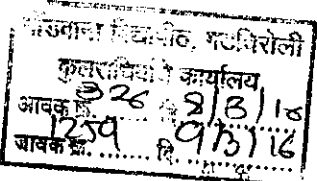 गोंडवाना विद्यापीठ, गडचिरोली
कुलसचिवांचे कार्यालय
आवक क्र. 326 दि. 8/3/16
जावक क्र. 1259 दि. 9/3/16